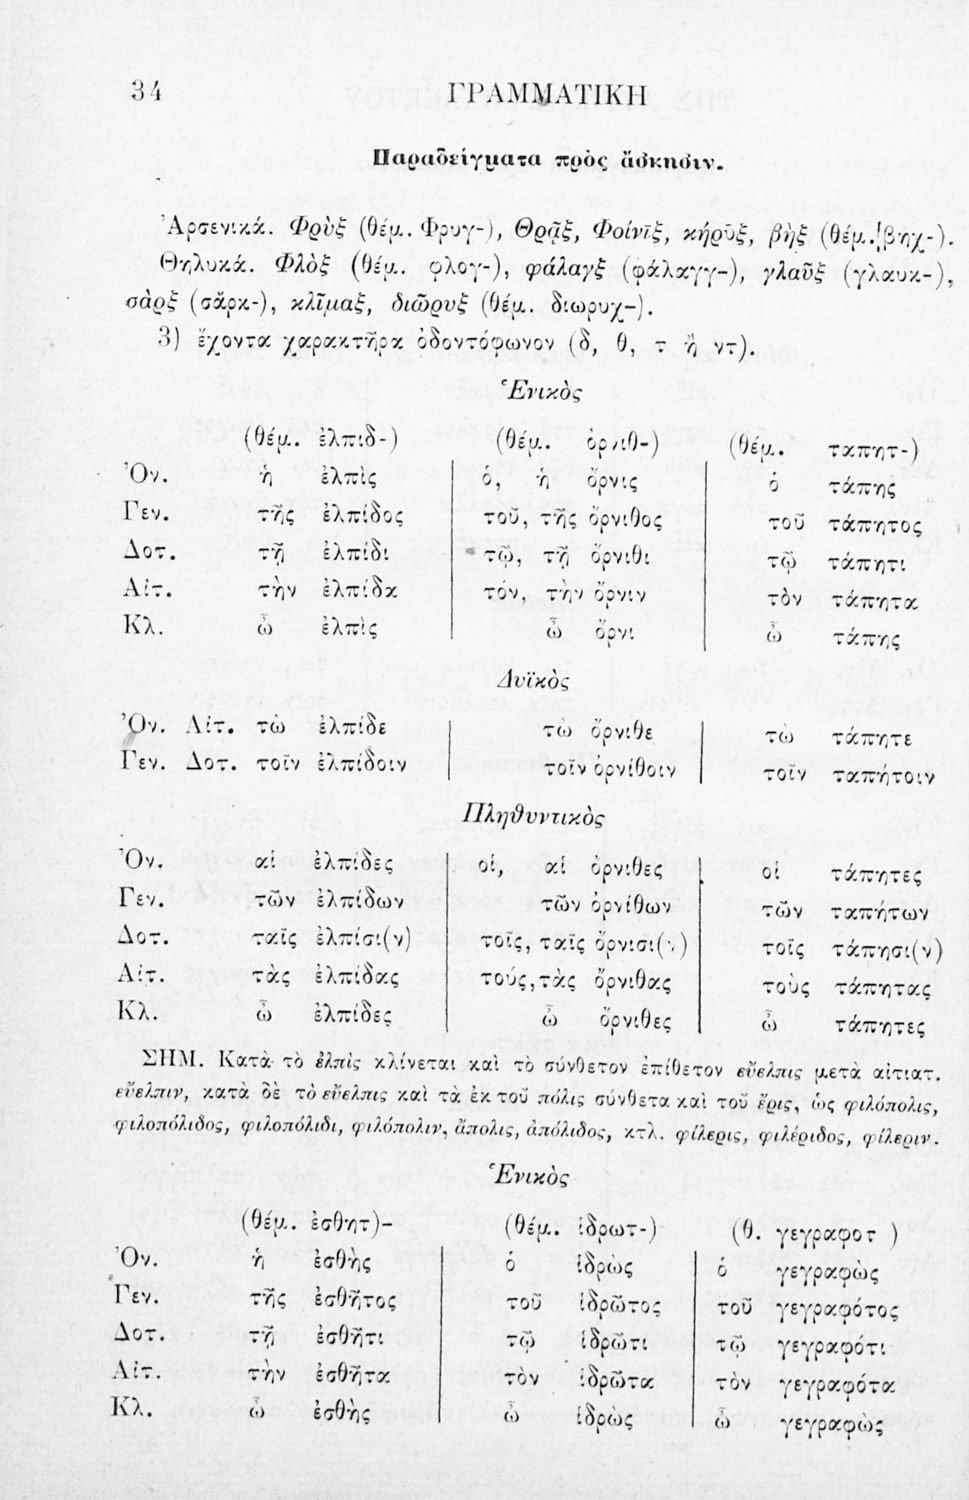 34 ΓΡΑΜΜΑΤΙΚΗ
Παραδείγματα πρὸς ἄσκησιν.
Ἀρσενικά. Φρὺξ (θέμ. Φρυγ-), Θρᾷξ, Φοίνῑξ, κήρῡξ, βὴξ (θέμ. βηχ-).
Θηλυκά. Φλὸξ (θέμ. φλογ-), φάλαγξ (φάλαγγ-), γλαῦξ (γλαυκ-),
σὰρξ (σᾰρκ-), κλῖμαξ, διῶρυξ (θέμ. διωρυχ-).
3) ἔχοντα χαρακτῆρα ὀδοντόφωνον (δ, θ, τ ἢ ντ).
Ἑνικὸς
(θέμ. ἐλπιδ-) (θέμ. ὀρνιθ-) (θέμ. ταπητ-)
Ὀν. ἡ ἐλπὶς ὁ, ἡ ὄρνις ὁ τάπης
Γεν. τῆς ἐλπίδος τοῦ, τῆς ὄρνιθος τοῦ τάπητος
Δοτ. τῇ ἐλπίδι τῷ, τῇ ὄρνιθι τῷ τάπητι
Αἰτ. τὴν ἐλπίδα τόν, τὴν ὄρνιν τὸν τάπητα
Κλ. ὦ ἐλπὶς ὦ ὄρνι ὦ τάπης
Δυϊκὸς
Ὀν. Αἰτ. τὼ ἐλπίδε τὼ ὄρνιθε τὼ τάπητε
Γεν. Δοτ. τοῖν ἐλπίδοιν τοῖν ὀρνίθοιν τοῖν ταπήτοιν
Πληθυντικὸς
Ὀν. αἱ ἐλπίδες οἱ, αἱ ὄρνιθες οἱ τάπητες
Γεν. τῶν ἐλπίδων τῶν ὀρνίθων τῶν ταπήτων
Δοτ. ταῖς ἐλπίσι(ν) τοῖς, ταῖς ὄρνισι(ν) τοῖς τάπησι(ν)
Αἰτ. τὰς ἐλπίδας τούς, τὰς ὄρνιθας τοὺς τάπητας
Κλ. ὦ ἐλπίδες ὦ ὄρνιθες ὦ τάπητες
ΣΗΜ. Κατὰ τὸ ἐλπὶς κλίνεται καὶ τὸ σύνθετον ἐπίθετον εὔελπις μετὰ αἰτιατ.
εὔελπιν, κατὰ δὲ τὸ εὔελπις καὶ τὰ ἐκ τοῦ πόλις σύνθετα καὶ τοῦ ἔρις, ὡς φιλόπολις,
φιλοπόλιδος, φιλοπόλιδι, φιλόπολιν, ἄπολις, ἀπόλιδος, κτλ. φίλερις, φιλέριδος, φίλεριν.
Ἑνικὸς
(θέμ. ἐσθητ)- (θέμ. ἱδρωτ-) (θ. γεγραφοτ )
Ὀν. ἡ ἐσθὴς ὁ ἱδρὼς ὁ γεγραφὼς
Γεν. τῆς ἐσθῆτος τοῦ ἱδρῶτος τοῦ γεγραφότος
Δοτ. τῇ ἐσθῆτι τῷ ἱδρῶτι τῷ γεγραφότι
Αἰτ. τὴν ἐσθῆτα τὸν ἱδρῶτα τὸν γεγραφότα
Κλ. ὦ ἐσθὴς ὦ ἱδρὼς ὦ γεγραφὼς